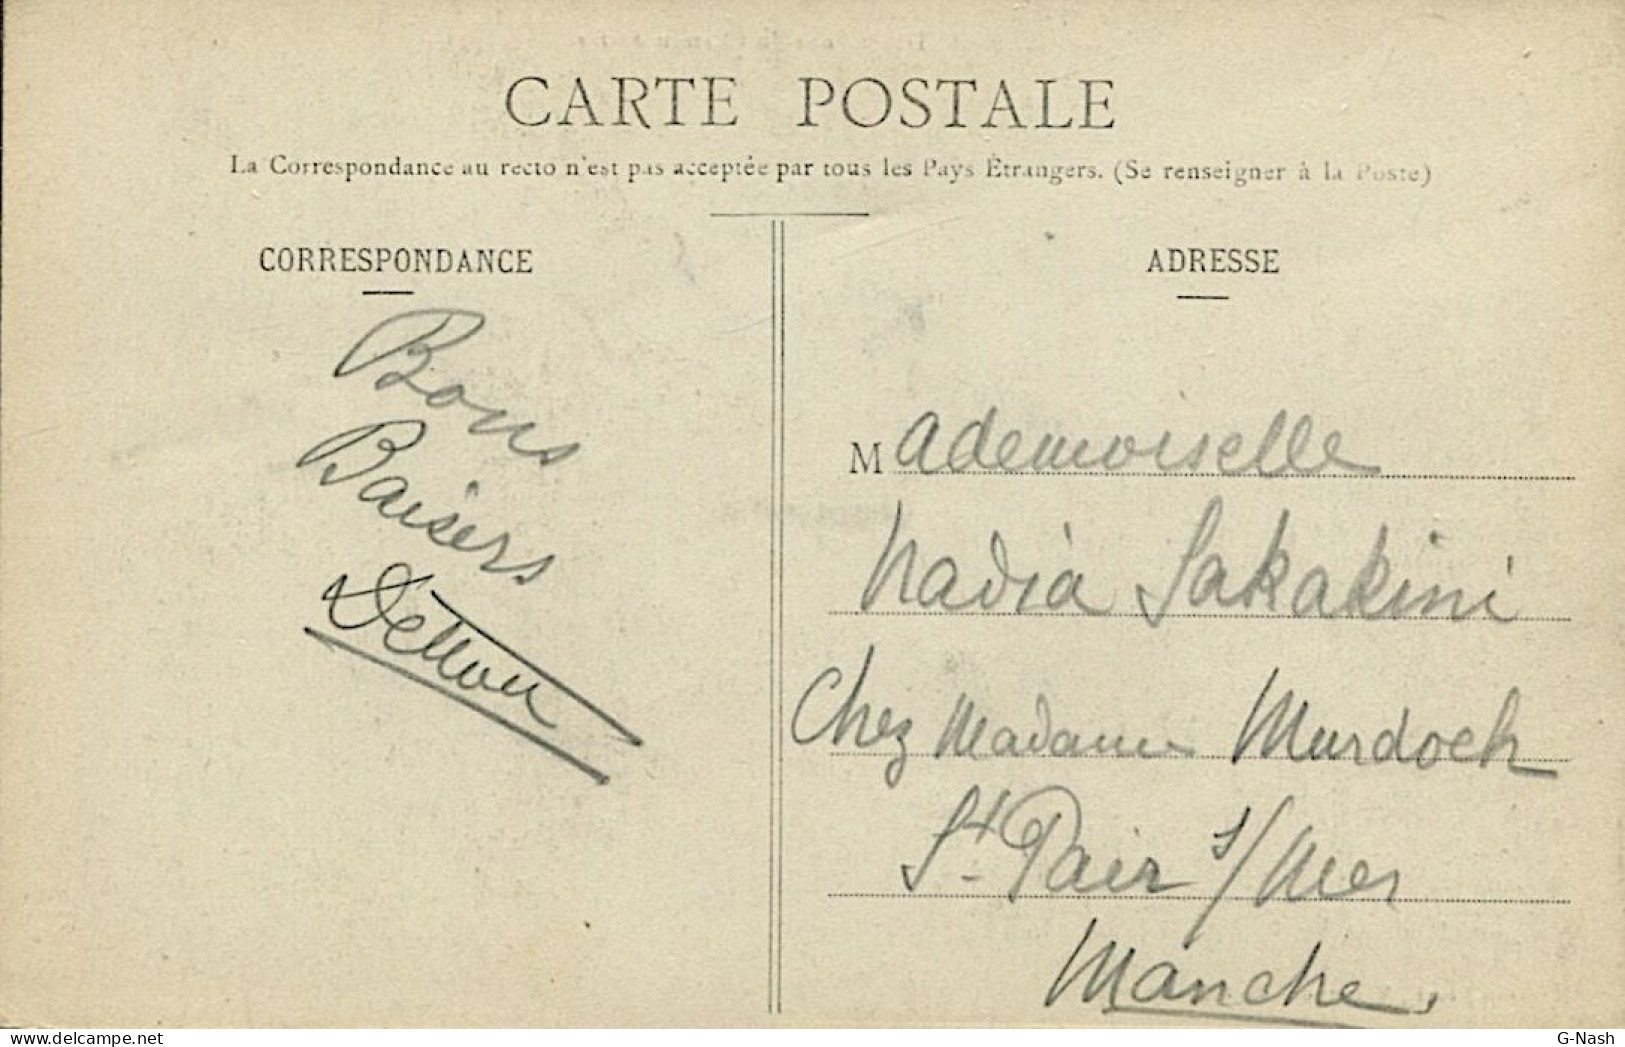 CARTE POSTALE
La Correspondance au recto n'est pas acceptée par tous les Pays Étrangers. (Se renseigner à la Poste)
CORRESPONDANCE
Bons
Baisers
ADRESSE
Mademoiselle
Nadia Sakakini
Chez Madame Murdoch
St Pair s/Mer
Manche
delcampe.net
G-Nash